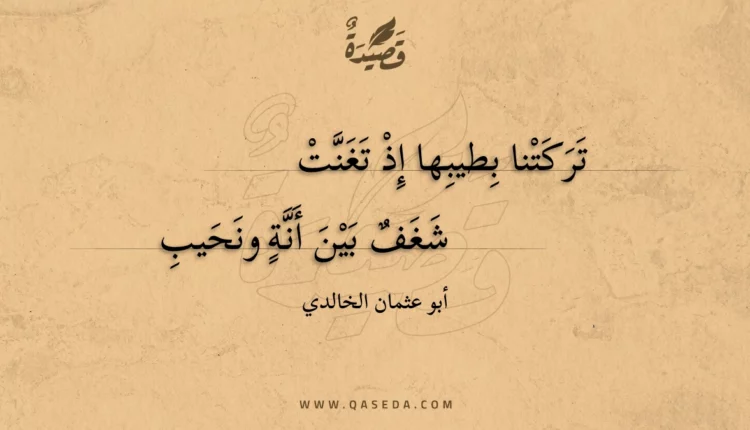 قَصِيْدَةٌ
تَرَكَتْنا بِطيبِها إِذْ تَغَنَّتْ
شَغَفٌ بَيْنَ أَنَّةٍ ونَحَيبِ
أبو عثمان الخالدي
WWW.QASEDA.COM